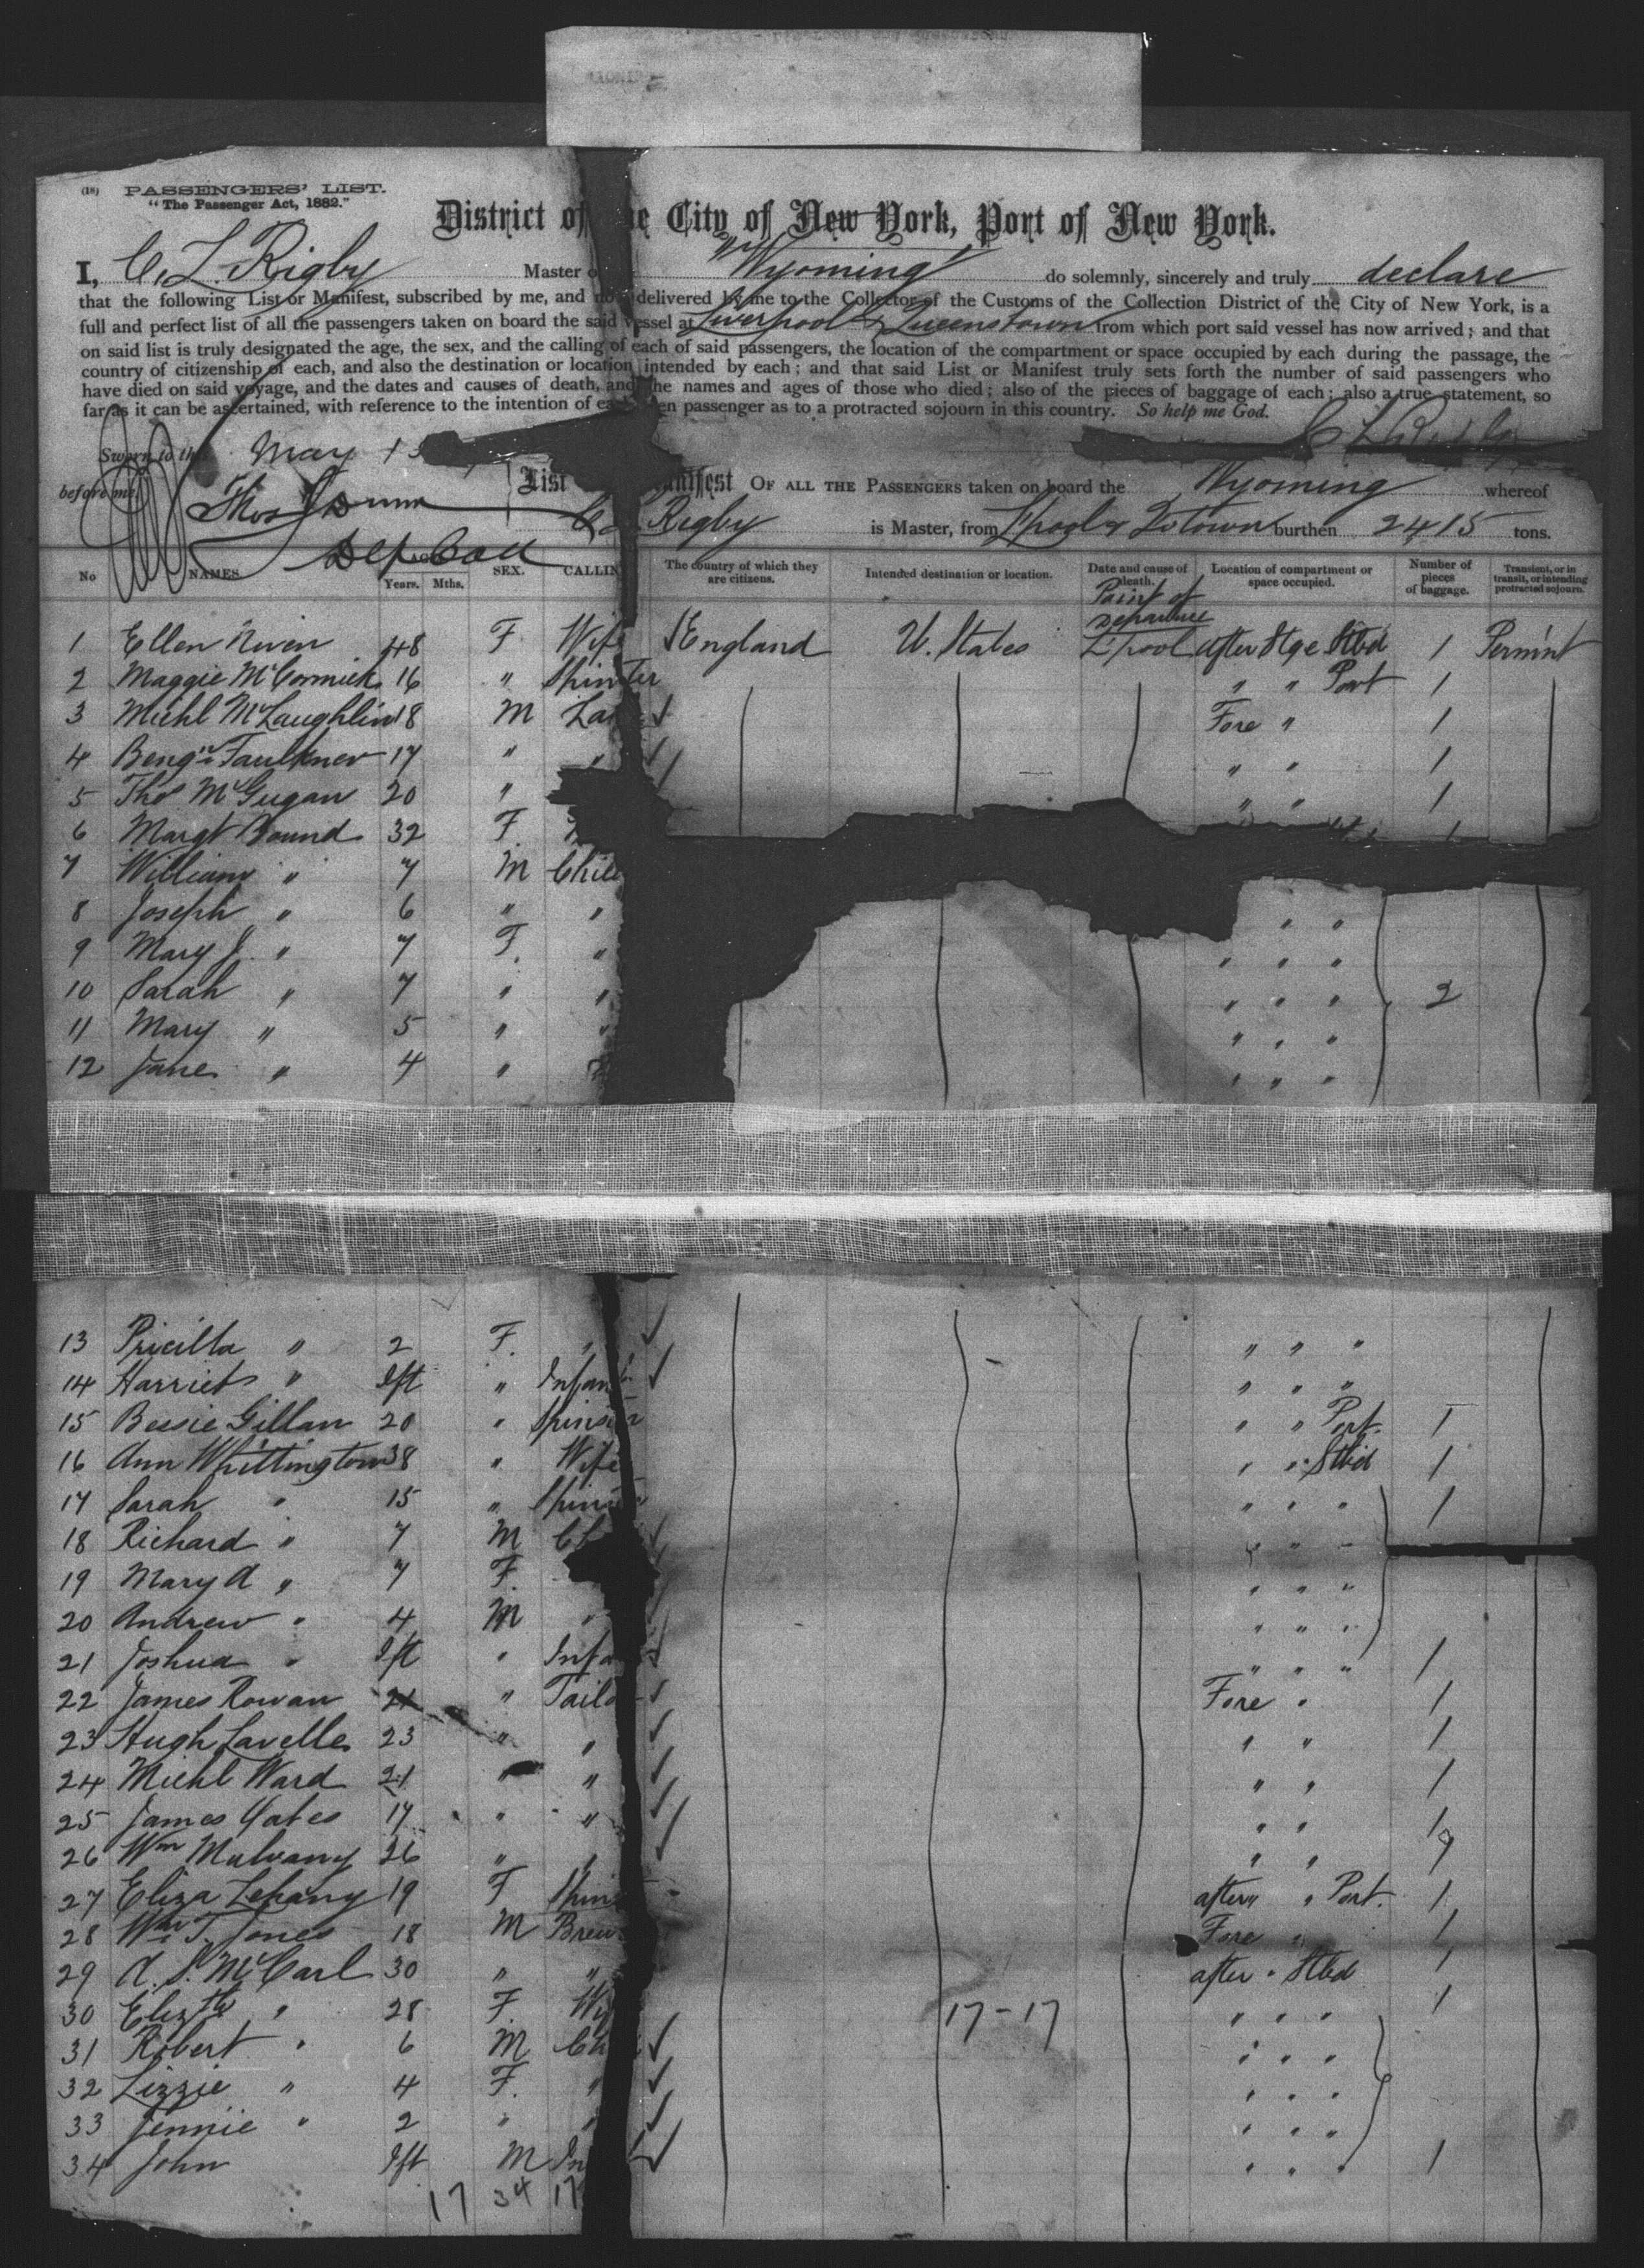 (18) PASSENGERS' LIST.
"The Passenger Act, 1882."
District of the City of New York, Port of New York.
I, C. L. Rigby Master of "Wyoming" do solemnly, sincerely and truly declare
that the following List or Manifest, subscribed by me, and now delivered by me to the Collector of the Customs of the Collection District of the City of New York, is a
full and perfect list of all the passengers taken on board the said vessel at Liverpool & Queenstown from which port said vessel has now arrived; and that
on said list is truly designated the age, the sex, and the calling of each of said passengers, the location of the compartment or space occupied by each during the passage, the
country of citizenship of each, and also the destination or location intended by each; and that said List or Manifest truly sets forth the number of said passengers who
have died on said voyage, and the dates and causes of death, and the names and ages of those who died; also of the pieces of baggage of each; also a true statement, so
far as it can be ascertained, with reference to the intention of each en passenger as to a protracted sojourn in this country. So help me God.
C L Rigby
Sworn to this May 13
before me, Thos Dunn
Dep Coll
List Manifest OF ALL THE PASSENGERS taken on board the Wyoming whereof
C L Rigby is Master, from L'pool & Q'town burthen 2415 tons.
No NAMES AGE Years. Mths. SEX. CALLIN The country of which they are citizens. Intended destination or location. Date and cause of death. Location of compartment or space occupied. Number of pieces of baggage. Transient, or in transit, or intending protracted sojourn.
Point of Departure
1 Ellen Niven 48 F Wife England U. States L'pool after Stge Stbd 1 Perm'nt
2 Maggie McCormick 16 " Spinster " " Port 1
3 Michl McLaughlin 18 M La Fore " 1
4 Benjn Faulkner 17 " " " " 1
5 Thos McGugan 20 " " " 1
6 Margt Bound 32 F
7 William " 7 M Chil
8 Joseph " 6 " " " "
9 Mary J. " 7 F. " " " "
10 Sarah " 7 " " " " " 2
11 Mary " 5 " " " " "
12 Jane " 4 " " " "
13 Pricilla " 2 F. " " " "
14 Harriet " Ift " Infant " " "
15 Bessie Gillan 20 " Spinster " " Port. 1
16 Ann Whittington 38 " Wife " " Stbd 1
17 Sarah " 15 " Spins " " " 1
18 Richard " 7 M Ch " " "
19 Mary A " 7 F. " " "
20 Andrew " 4 M " " " "
21 Joshua " Ift " Infa " " " 1
22 James Rowan 21 " Tailo Fore " 1
23 Hugh Lavelle 23 " " " " 1
24 Michl Ward 21 " " " " 1
25 James Yates 17 " " " " 1
26 Wm Mulvany 26 " " " "
27 Eliza Lehany 19 F Spins after " " Port. 1
28 Wm T. Jones 18 M Brew Fore " 1
29 A. S. McCarl 30 " " after " Stbd 1
30 Elizth " 28 F. Wif " " " 1
31 Robert " 6 M Ch " " "
32 Lizzie " 4 F. " " " "
33 Jennie " 2 " " " " "
34 John Ift M In " " " 1
17-17
17 34 17